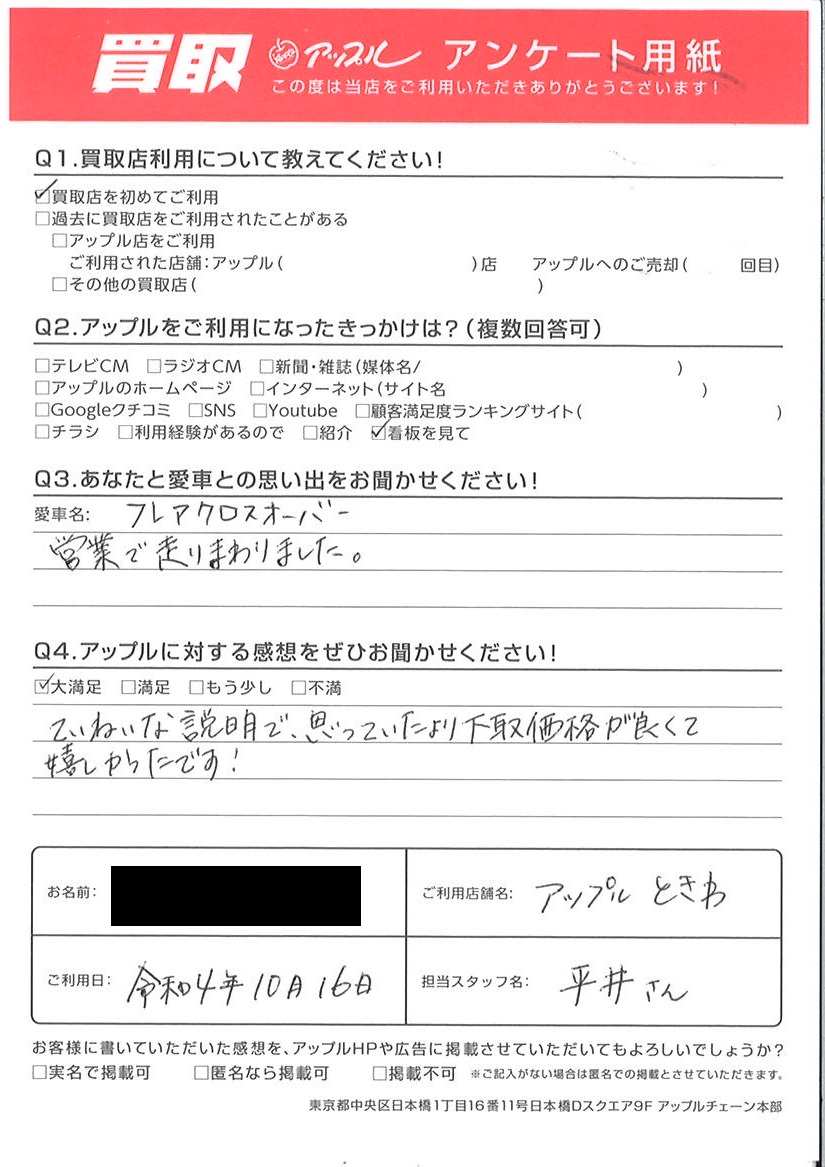 買取 アップル アンケート用紙
この度は当店をご利用いただきありがとうございます!
Q1.買取店利用について教えてください!
☑買取店を初めてご利用
□過去に買取店をご利用されたことがある
□アップル店をご利用
ご利用された店舗:アップル( )店 アップルへのご売却( 回目)
□その他の買取店( )
Q2.アップルをご利用になったきっかけは?(複数回答可)
□テレビCM □ラジオCM □新聞・雑誌(媒体名/ )
□アップルのホームページ □インターネット(サイト名 )
□Googleクチコミ □SNS □Youtube □顧客満足度ランキングサイト( )
□チラシ □利用経験があるので □紹介 ☑看板を見て
Q3.あなたと愛車との思い出をお聞かせください!
愛車名: フレアクロスオーバー
営業で走りまわりました。
Q4.アップルに対する感想をぜひお聞かせください!
☑大満足 □満足 □もう少し □不満
ていねいな説明で、思っていたより下取価格が良くて
嬉しかったです!
お名前: ご利用店舗名: アップル ときわ
ご利用日: 令和4年10月16日 担当スタッフ名: 平井さん
お客様に書いていただいた感想を、アップルHPや広告に掲載させていただいてもよろしいでしょうか?
□実名で掲載可 □匿名なら掲載可 □掲載不可 ※ご記入がない場合は匿名での掲載とさせていただきます。
東京都中央区日本橋1丁目16番11号日本橋Dスクエア9F アップルチェーン本部